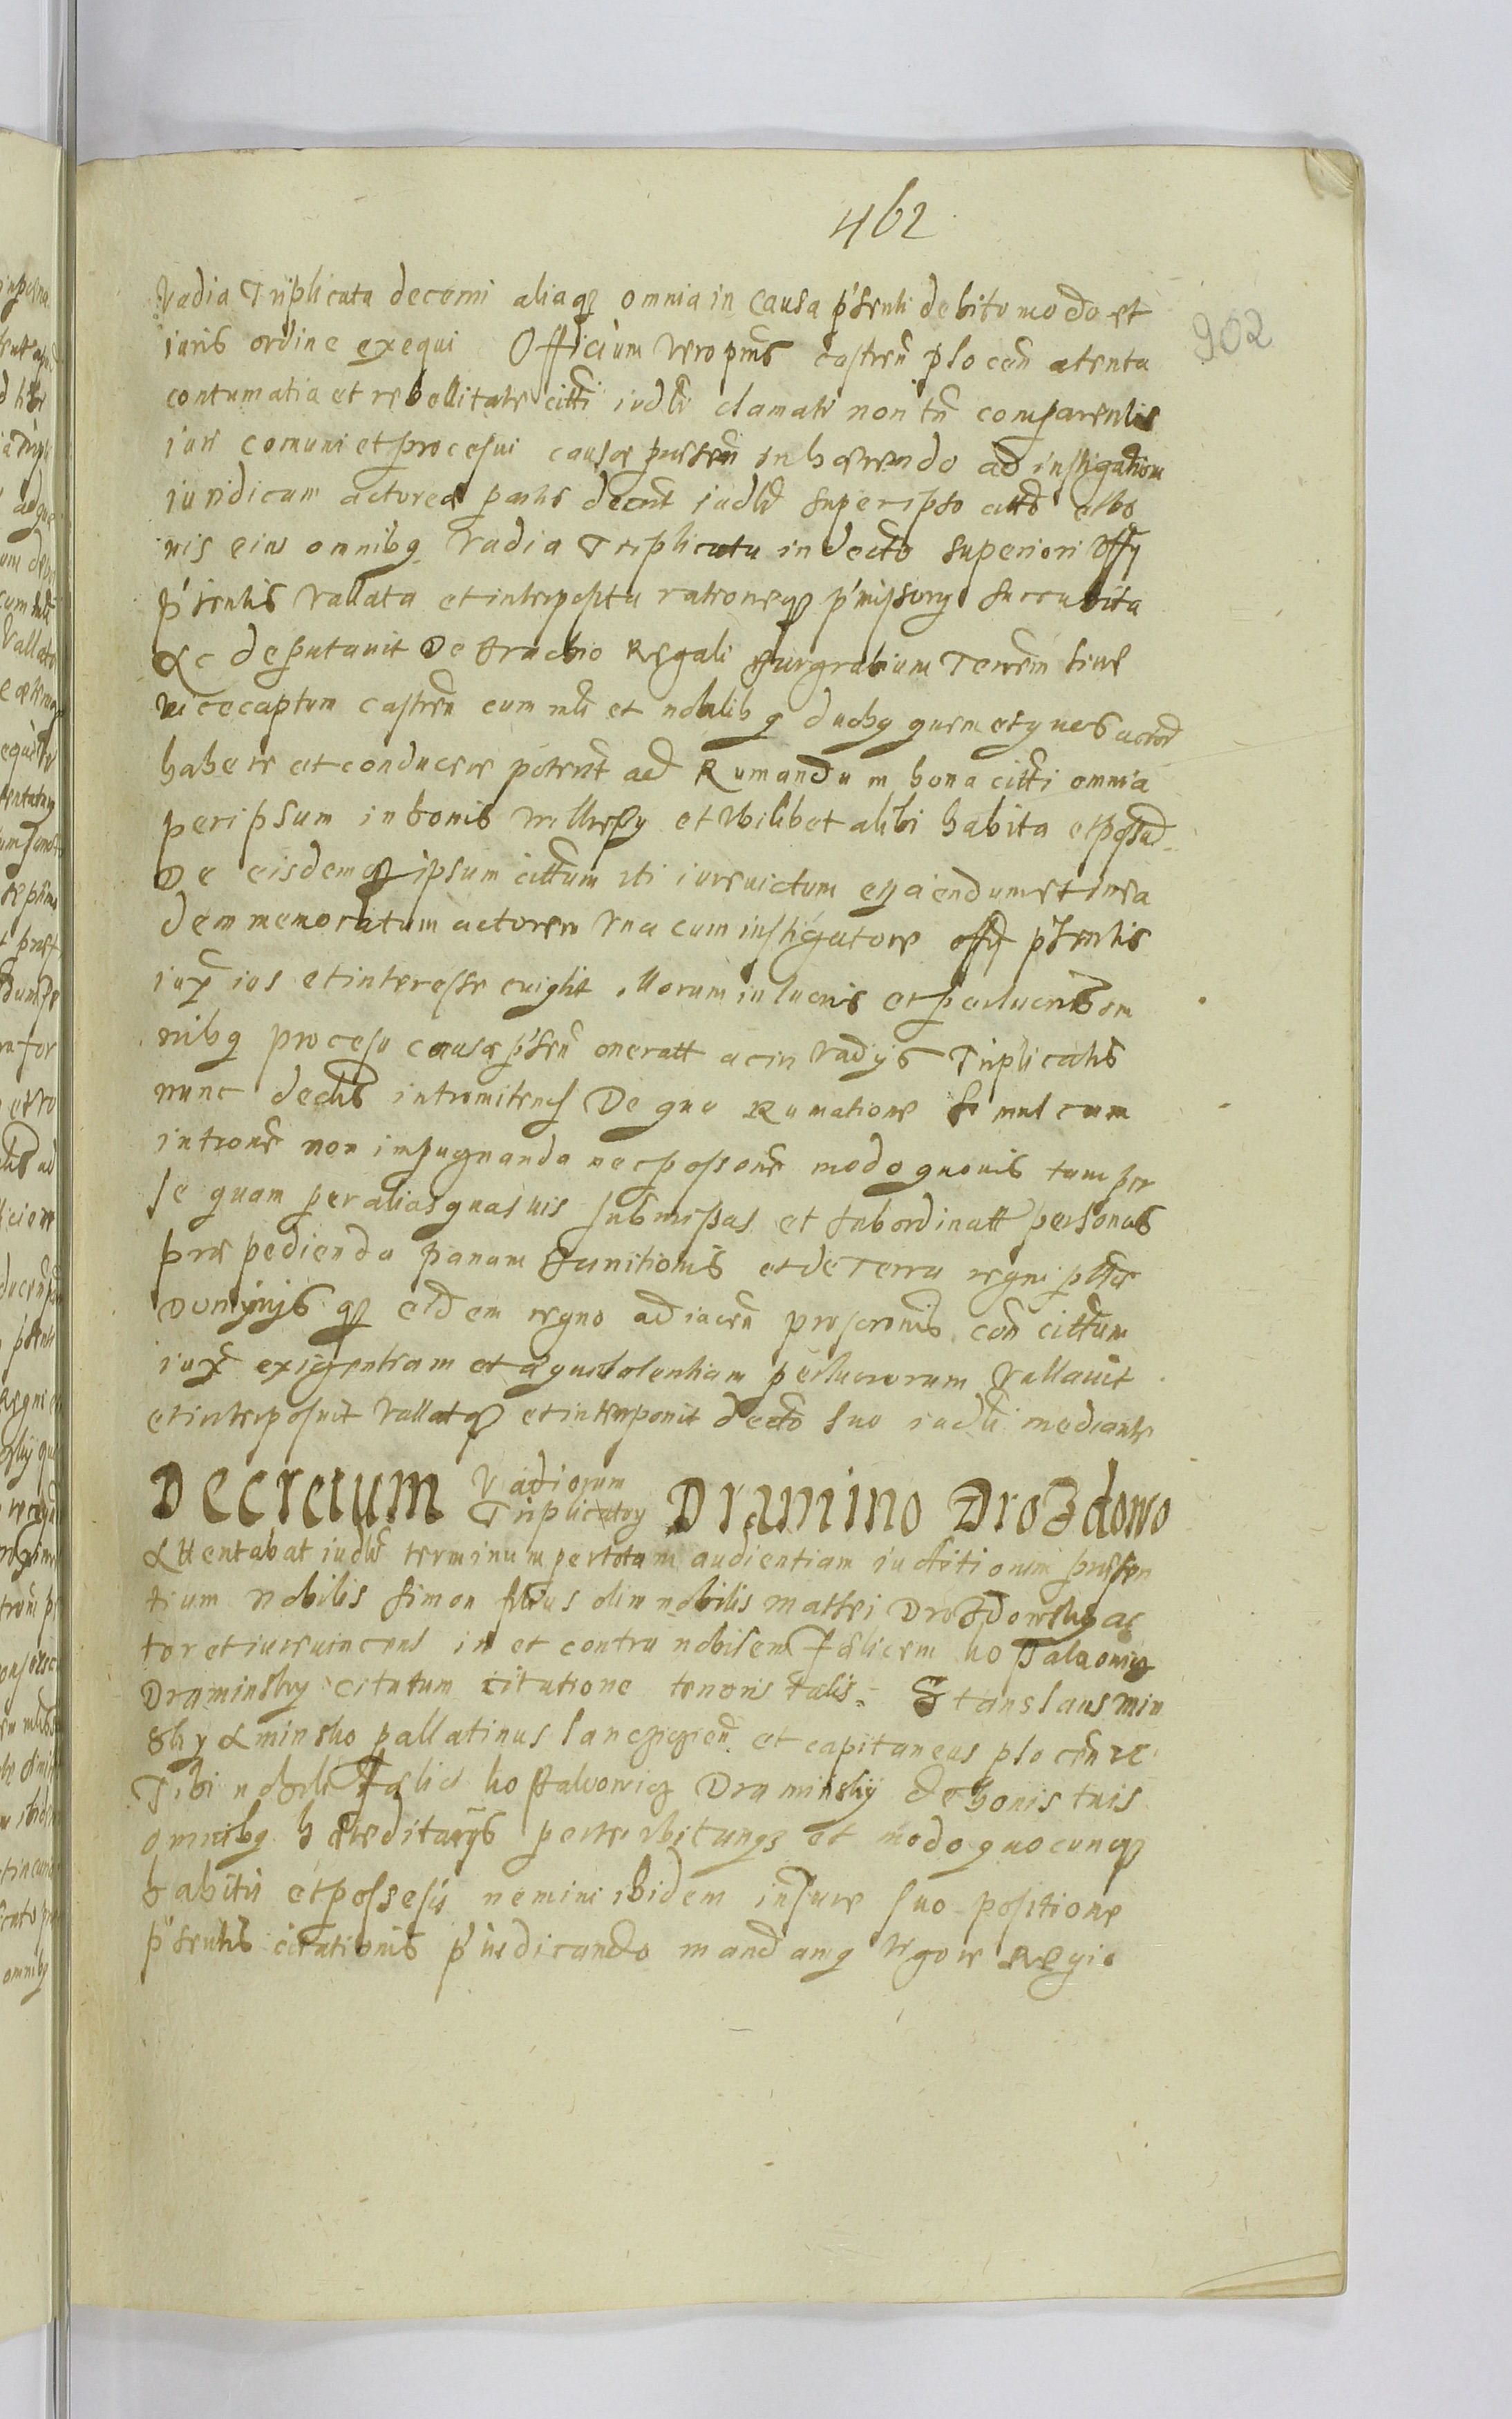 462
902
Vadia Triplicata decerni aliaq3 omnia in causa p'senti debito modo et
iuris ordine exequi Officium vero pnis castren plocen atenta
contumatia et rebellitate citti iudlr clamati non tn comparentis
iuri comuni et procesui causæ præsen inhærendo ad instigationem
iuridicam actoreæ partis decrit iudlr super ipso citto et bo
nis eius omnibq Vadia Triplicata in decto superiori Offy
p'sentis Vallata et interposita rationeq3 p'missorum succubita
Ac deputavit De brachio Regali burgrabium Terrem sive
vicecaptum castren cum mli et nobilibq duobq quem et quos actor
habere et conducere poterit ad Rumandum bona citti omnia
per ipsum in bonis et vbilibet alibi habita et possad
De eisdemq3 ipsum cittum vti iurevictum eyciendum et in ea
dem memoratum actorem vna cum instigatore offy p'sentis
iux ius et interesse evigit illorum in lucris et perlucris om
nibq procesu causæ p'sen oneratt ac in vadijs Triplicatis
nunc dectis intromitend De qua Rumatione simul cum
introne non impugnanda nec possone modo quovis tam per
se quam per alias quasvis submissas et subordinatt personas
præpedienda pænam banitionis et de Terra regni
Dominijsq3 eidem regno adiacen proscronis con cittum
iux exigentiam et æquivolentiam perlucrorum Vallavit
et interposuit Vallatq3 et interponit decto suo iudli mediante
Decretum Vadiorum Triplicatorum Dramino Drozdowo
Attentabat iudlr terminum per totam audientiam iuditiorum præsen
tium Nobilis Simon filius olim nobilis Mathei Drozdowsky ac
tor et iurevincens in et contra nobilem Fælicem
Draminsky citatum citatione tenoris talis. Stanslaus Min
sky A minsko pallatinus lancicien et capitaneus plocen 2c
Tibi nobili Fælici Draminskij de bonis tuis
omnibq hæreditarijs vbicunq3 et modo quocunq3
habitis et possesis nemini ibidem in iure suo positione
p'sentis citationis p'iudicando mandamq vigore Regio